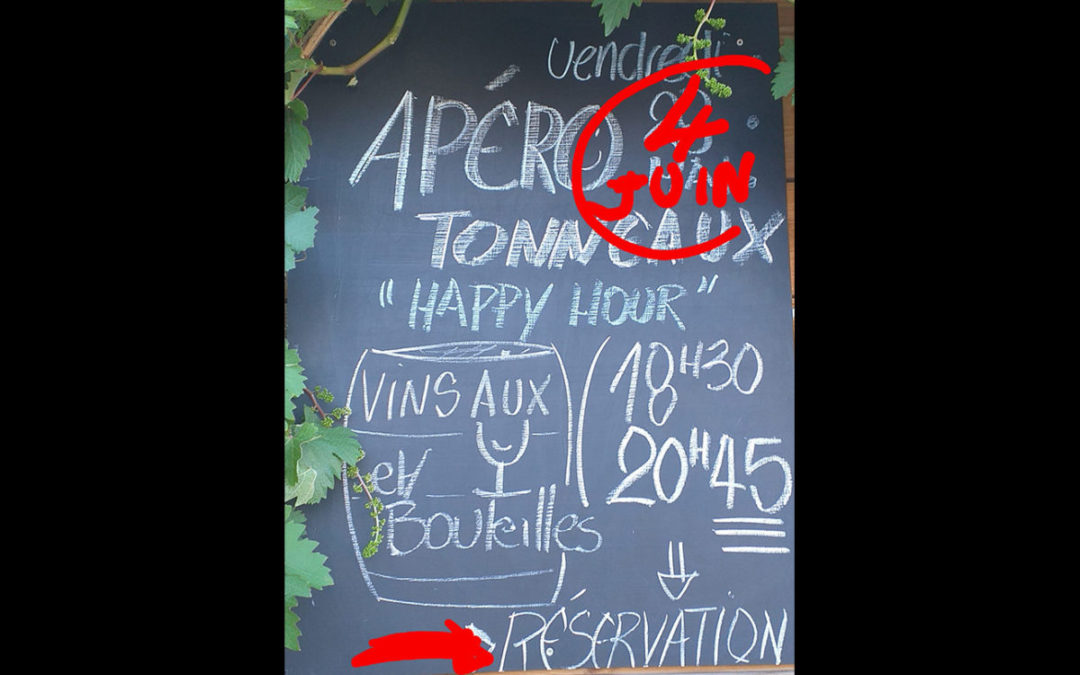 Vendredi
4
JUIN
APÉRO
TONNEAUX
"HAPPY HOUR"
VINS AUX
et
Bouteilles
18H30
20H45
RÉSERVATION